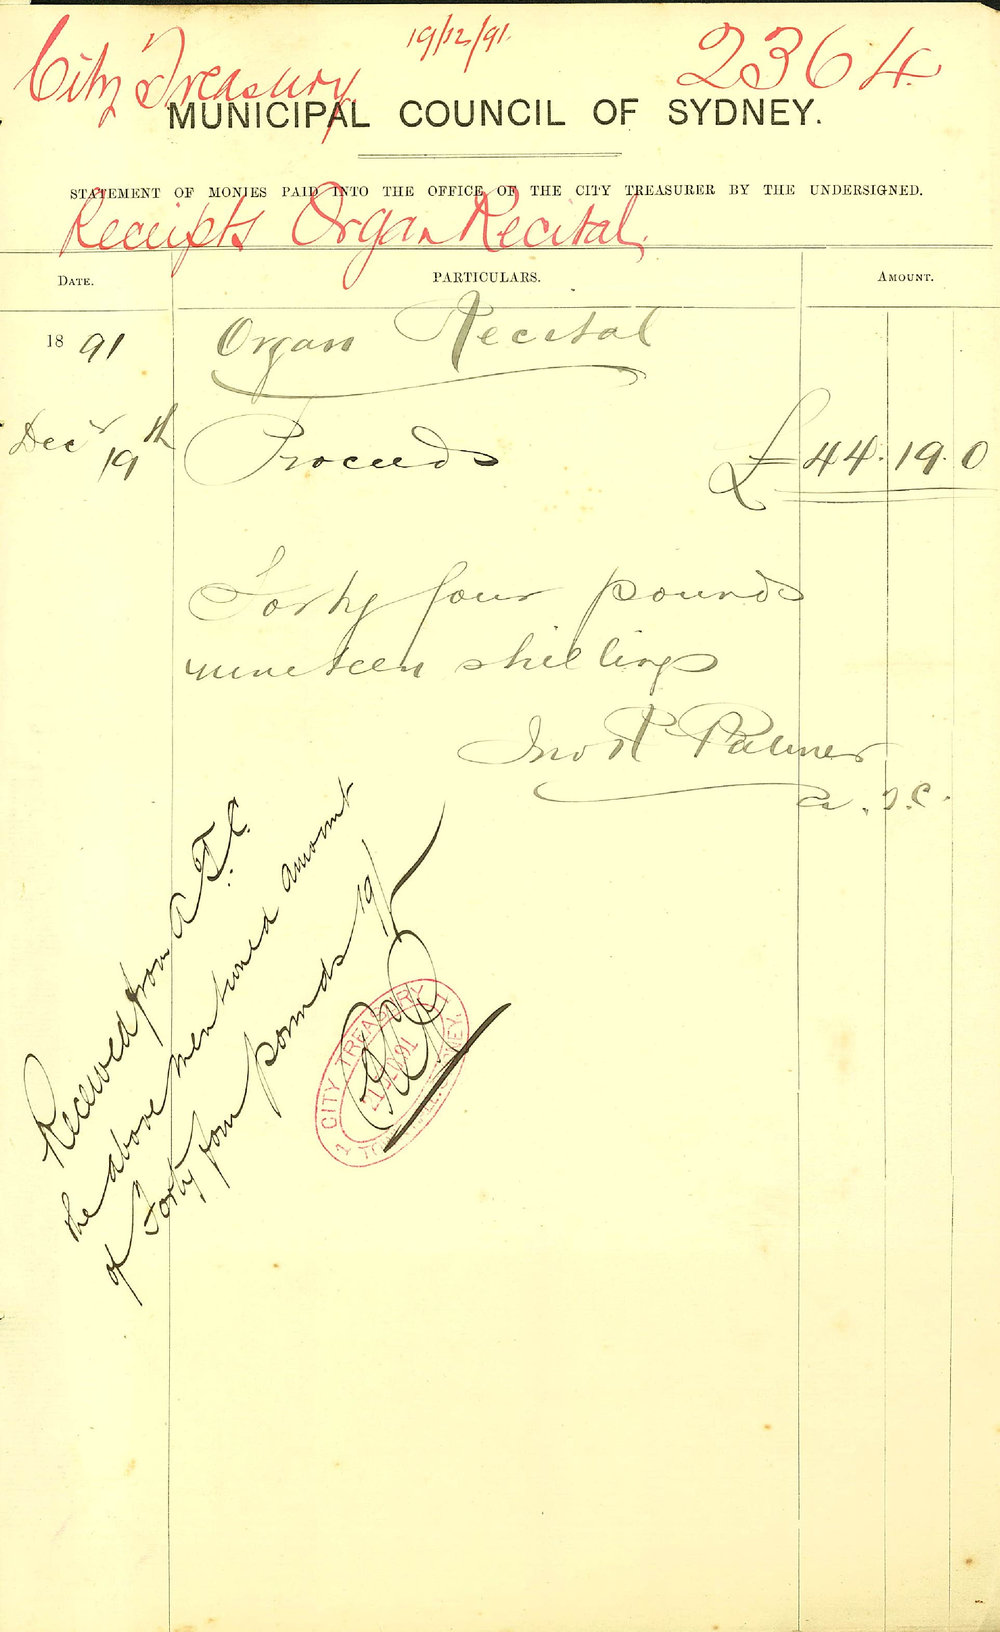 City Treasury 19/12/91. 2364.
MUNICIPAL COUNCIL OF SYDNEY.
STATEMENT OF MONIES PAID INTO THE OFFICE OF THE CITY TREASURER BY THE UNDERSIGNED.
Receipts Organ Recital.
DATE. PARTICULARS. AMOUNT.
1891 Organ Recital
Decr 19th Proceeds £44.19.0
Forty four pounds
nineteen shillings
Jno R Palmer
A.T.C.
Received from A.T.C.
the above mentioned amount
of Forty four pounds 19/
CITY TREASURY
21 91